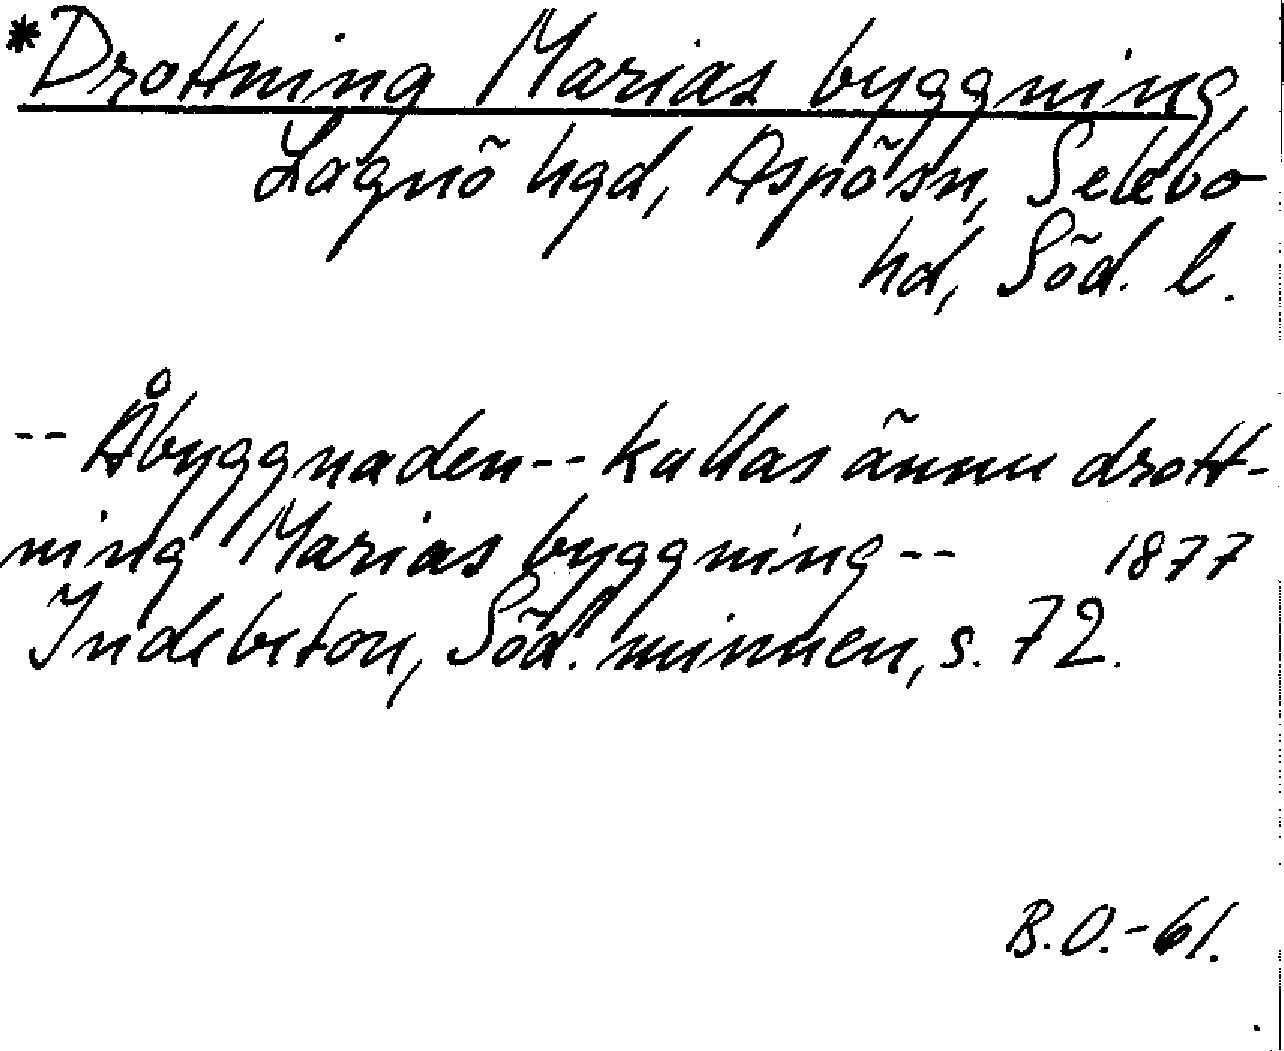 *Drottning Marias byggning,
Lagnö hgd, Aspö sn, Selebo
hd, Söd. l.
-- Åbyggnaden -- kallas ännu drott-
ning Marias byggning -- 1877
Indebetou, Söd. minnen, s. 72.
B.O.-61.